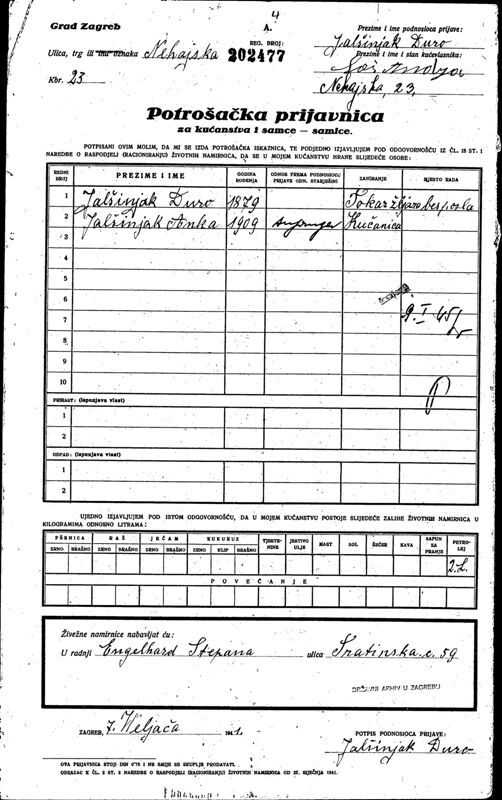 4
Grad Zagreb
A.
Prezime i ime podnosioca prijave:
Ulica, trg ili ina oznaka Nehajska
REG. BROJ:
202477
Jalšinjak Đuro
Prezime i ime i stan kućevlasnika:
Kbr. 23
Nehajska, 23.
Potrošačka prijavnica
za kućanstva i samce – samice.
POTPISANI OVIM MOLIM, DA MI SE IZDA POTROŠAČKA ISKAZNICA, TE PODJEDNO IZJAVLJUJEM POD ODGOVORNOŠĆU IZ ČL. 18 ST. 1
NAREDBE O RASPODJELI (RACIONIRANJU) ŽIVOTNIH NAMIRNICA, DA SE U MOJEM KUĆANSTVU HRANE SLIJEDEĆE OSOBE:
REDNI BROJ PREZIME I IME GODINA ROĐENJA ODNOS PREMA PODNOSIOCU PRIJAVE ODN. STARJEŠINI ZANIMANJE MJESTO RADA
1 Jalšinjak Đuro 1879 Tokar bez posla
2 Jalšinjak Anka 1909 supruga Kućanica
3
4
5
6
7 9. I 45
8
9
10
PRIRAST: (ispunjava vlast)
1
2
OTPAD: (ispunjava vlast)
1
2
UJEDNO IZJAVLJUJEM POD ISTOM ODGOVORNOŠĆU, DA U MOJEM KUĆANSTVU POSTOJE SLIJEDEĆE ZALIHE ŽIVOTNIH NAMIRNICA U
KILOGRAMIMA ODNOSNO LITRAMA:
PŠENICA RAŽ JEČAM KUKURUZ TJESTENINE JESTIVO ULJE MAST SOL ŠEĆER KAVA SAPUN ZA PRANJE PETROLEJ
ZRNO BRAŠNO ZRNO BRAŠNO ZRNO BRAŠNO ZRNO KLIP BRAŠNO
2 L.
POVEĆANJE
Živežne namirnice nabavljat ću:
U radnji Engelhard Stepana ulica Tratinska c. 59
DRŽAVNI ARHIV U ZAGREBU
ZAGREB, 7. Veljača 1941.
POTPIS PODNOSIOCA PRIJAVE:
Jalšinjak Đuro
OVA PRIJAVNICA STOJI DIN 0'75 I NE SMIJE SE SKUPLJE PRODAVATI.
OBRAZAC K ČL. 2 ST. 2 NAREDBE O RASPODJELI (RACIONIRANJU) ŽIVOTNIH NAMIRNICA OD 27. SIJEČNJA 1941.